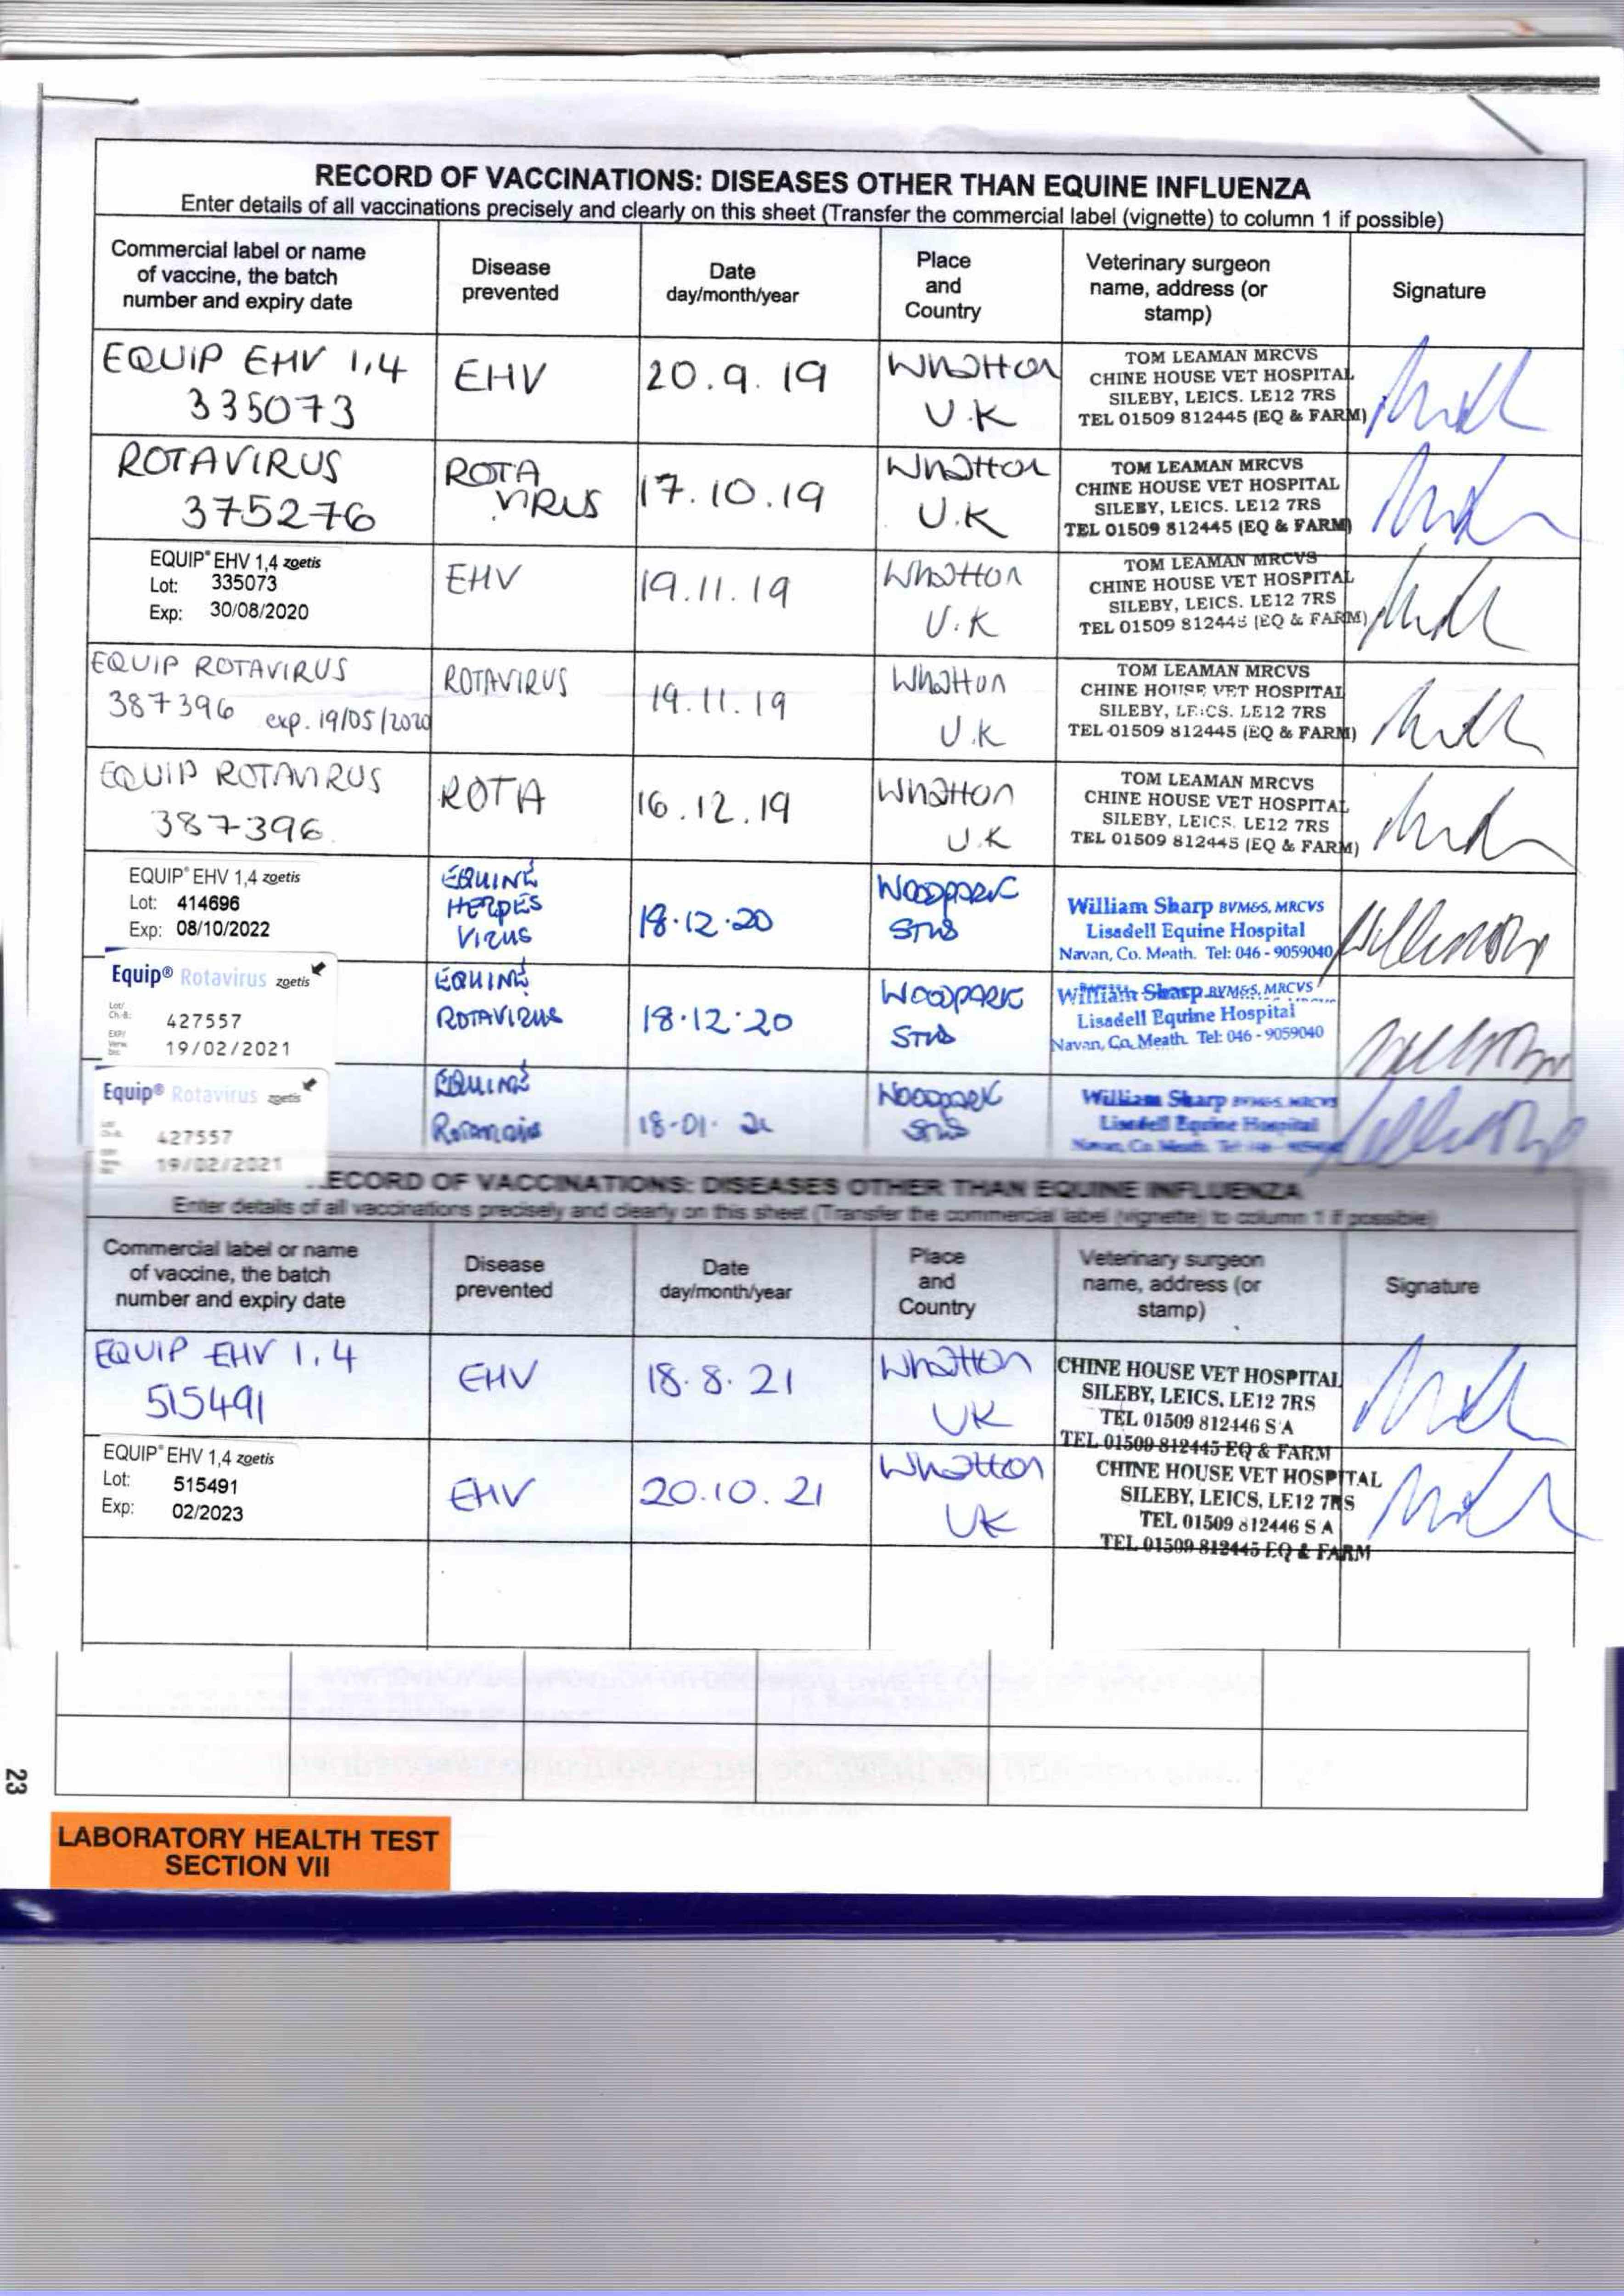 RECORD OF VACCINATIONS: DISEASES OTHER THAN EQUINE INFLUENZA
Enter details of all vaccinations precisely and clearly on this sheet (Transfer the commercial label (vignette) to column 1 if possible)
Commercial label or name of vaccine, the batch number and expiry date
Disease prevented
Date day/month/year
Place and Country
Veterinary surgeon name, address (or stamp)
Signature
EQUIP EHV 1,4
335073
EHV
20.9.19
Whatton
U.K
TOM LEAMAN MRCVS
CHINE HOUSE VET HOSPITAL
SILEBY, LEICS. LE12 7RS
TEL 01509 812445 (EQ & FARM)
ROTAVIRUS
375276
ROTA
VIRUS
17.10.19
Whatton
U.K
TOM LEAMAN MRCVS
CHINE HOUSE VET HOSPITAL
SILEBY, LEICS. LE12 7RS
TEL 01509 812445 (EQ & FARM)
EQUIP® EHV 1,4 zoetis
Lot: 335073
Exp: 30/08/2020
EHV
19.11.19
Whatton
U.K
TOM LEAMAN MRCVS
CHINE HOUSE VET HOSPITAL
SILEBY, LEICS. LE12 7RS
TEL 01509 812445 (EQ & FARM)
EQUIP ROTAVIRUS
387396 exp. 19/05/2020
ROTAVIRUS
19.11.19
Whatton
U.K
TOM LEAMAN MRCVS
CHINE HOUSE VET HOSPITAL
SILEBY, LEICS. LE12 7RS
TEL 01509 812445 (EQ & FARM)
EQUIP ROTAVIRUS
387396
ROTA
16.12.19
Whatton
U.K
TOM LEAMAN MRCVS
CHINE HOUSE VET HOSPITAL
SILEBY, LEICS. LE12 7RS
TEL 01509 812445 (EQ & FARM)
EQUIP® EHV 1,4 zoetis
Lot: 414696
Exp: 08/10/2022
EQUINE
HERPES
VIRUS
18.12.20
WOODPARK
STUD
William Sharp BVM&S, MRCVS
Lisadell Equine Hospital
Navan, Co. Meath. Tel: 046 - 9059040
Equip® Rotavirus zoetis
427557
19/02/2021
EQUINE
ROTAVIRUS
18.12.20
WOODPARK
STUD
William Sharp BVM&S, MRCVS
Lisadell Equine Hospital
Navan, Co. Meath. Tel: 046 - 9059040
Equip® Rotavirus zoetis
427557
19/02/2021
EQUINE
18-01-21
WOODPARK
STUD
William Sharp BVM&S, MRCVS
Lisadell Equine Hospital
Navan, Co. Meath.
ECORD OF VACCINATIONS: DISEASES OTHER THAN EQUINE INFLUENZA
Enter details of all vaccinations precisely and clearly on this sheet (Transfer the commercial label (vignette) to column 1 if possible)
Commercial label or name of vaccine, the batch number and expiry date
Disease prevented
Date day/month/year
Place and Country
Veterinary surgeon name, address (or stamp)
Signature
EQUIP EHV 1,4
515491
EHV
18.8.21
Whatton
UK
CHINE HOUSE VET HOSPITAL
SILEBY, LEICS, LE12 7RS
TEL 01509 812446 S A
TEL 01509 812445 EQ & FARM
EQUIP® EHV 1,4 zoetis
Lot: 515491
Exp: 02/2023
EHV
20.10.21
Whatton
UK
CHINE HOUSE VET HOSPITAL
SILEBY, LEICS, LE12 7RS
TEL 01509 812446 S A
TEL 01509 812445 EQ & FARM
23
LABORATORY HEALTH TEST
SECTION VII